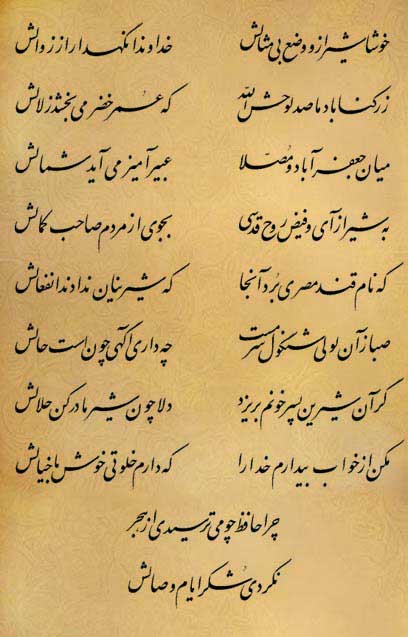 خوشا شیراز و وضع بی مثالش خداوندا نگهدار از زوالش
ز رکناباد ما صد لوحش الله که عمر خضر می بخشد زلالش
میان جعفرآباد و مصلا عبیرآمیز می آید شمالش
به شیراز آی و فیض روح قدسی بجوی از مردم صاحب کمالش
که نام قند مصری برد آنجا که شیرینان ندادند انفعالش
صبا زآن لولی شنگول سرمست چه داری آگهی چون است حالش
گر آن شیرین پسر خونم بریزد دلا چون شیر مادر کن حلالش
مکن از خواب بیدارم خدا را که دارم خلوتی خوش با خیالش
چرا حافظ چو می ترسیدی از هجر
نکردی شکر ایام وصالش